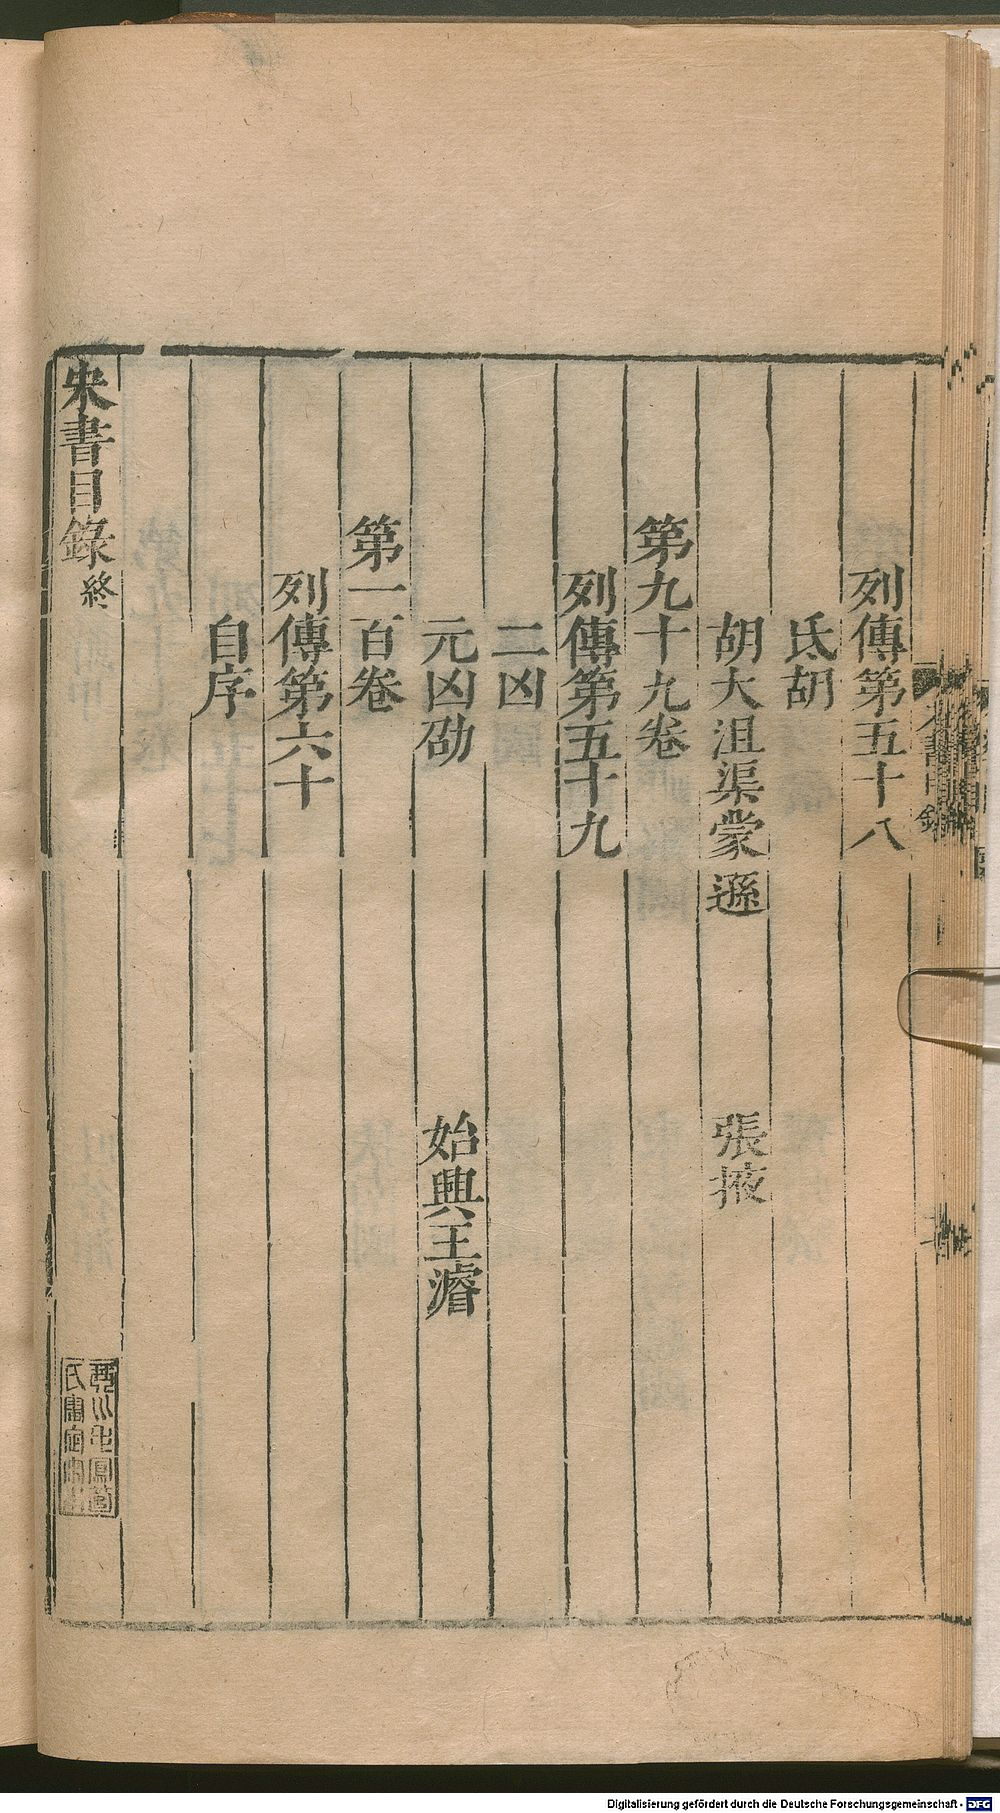 列傳第五十八
氐胡
胡大沮渠蒙遜 張掖
第九十九卷
列傳第五十九
二凶
元凶劭 始興王濬
第一百卷
列傳第六十
自序
宋書目錄終
Digitalisierung gefördert durch die Deutsche Forschungsgemeinschaft - DFG